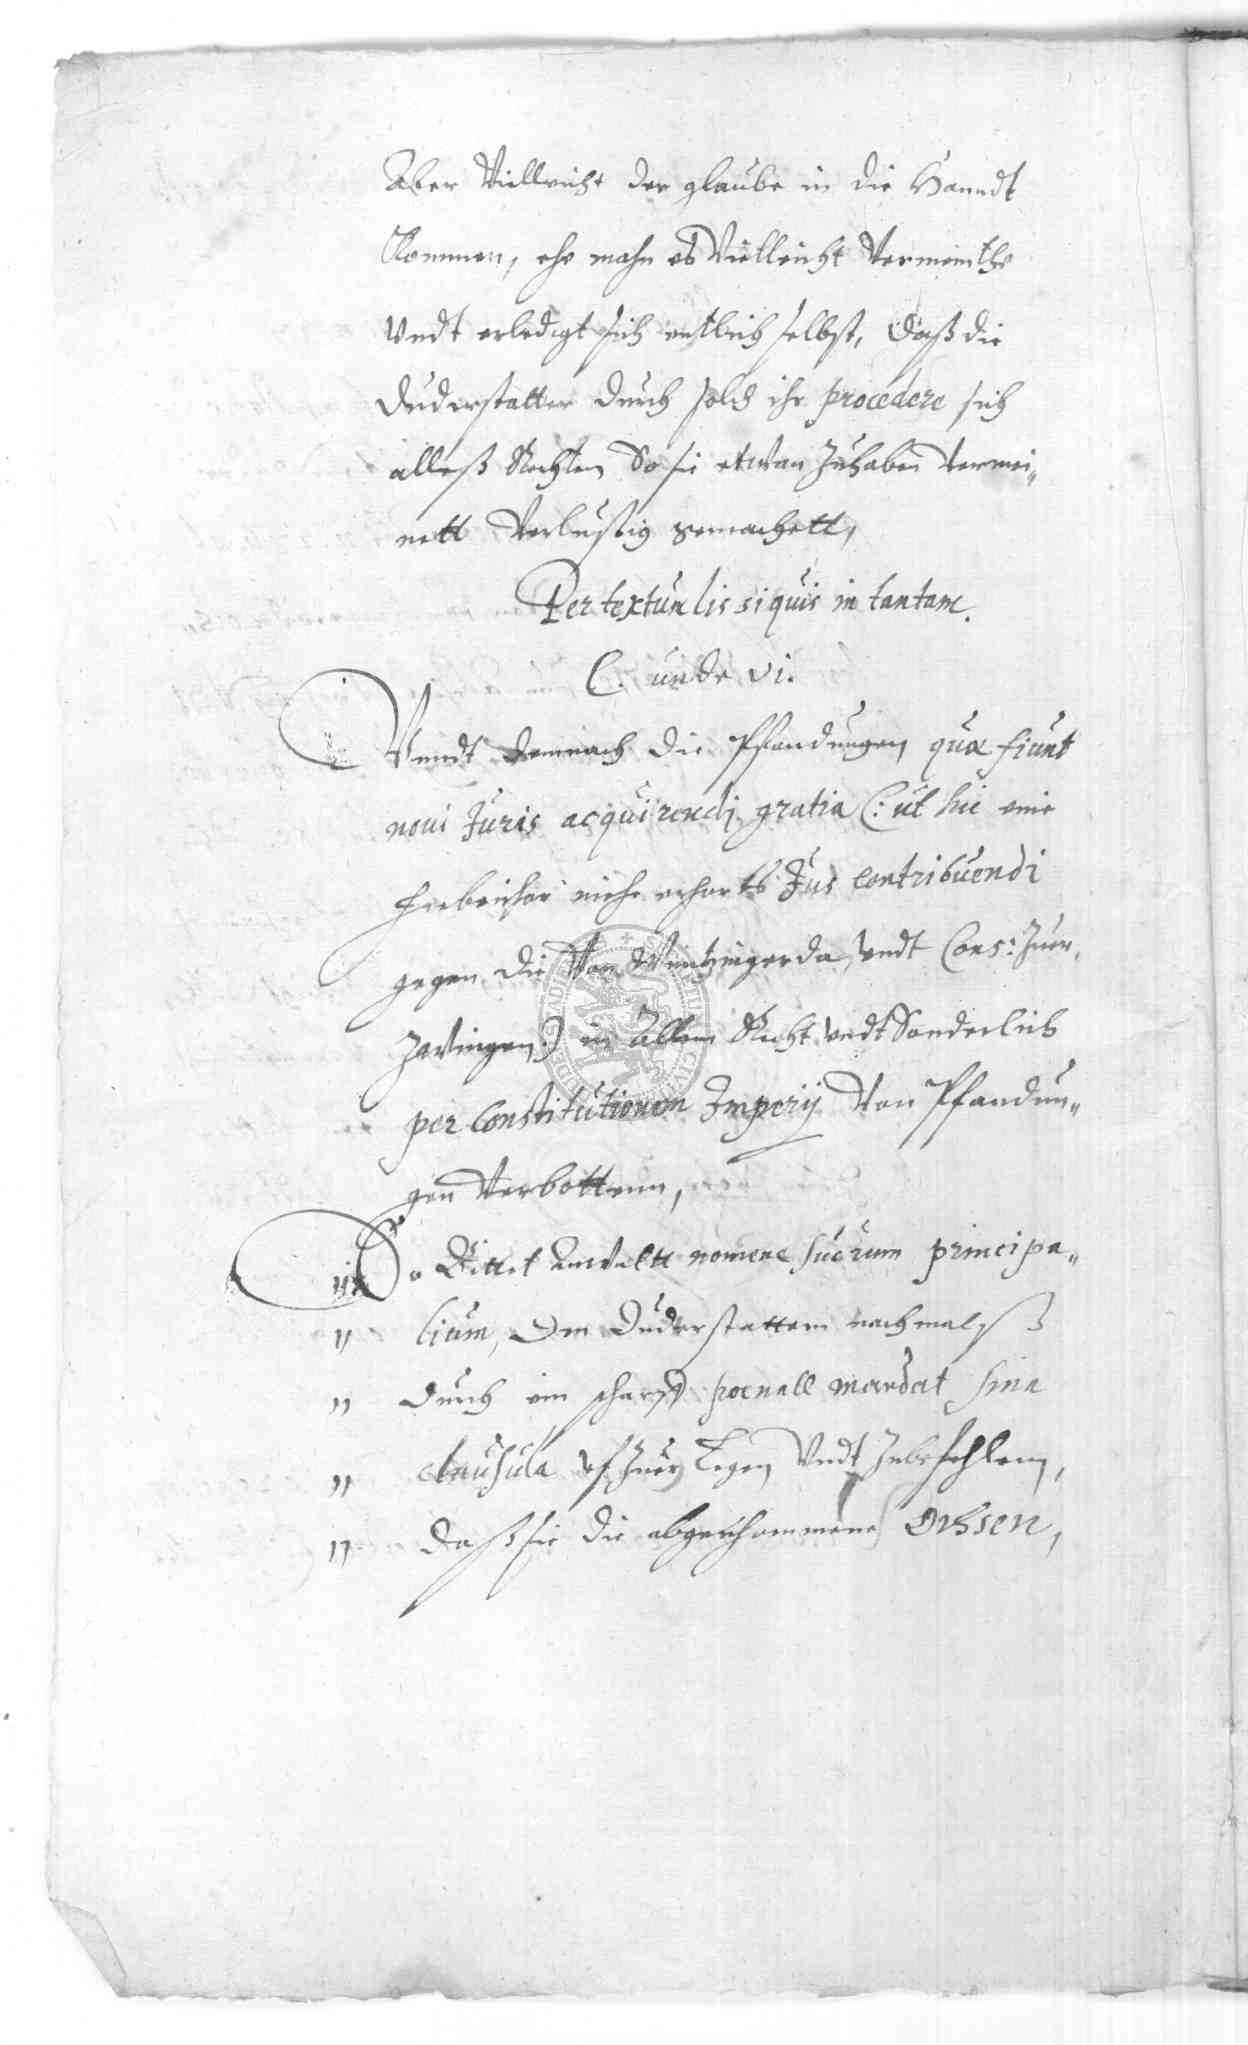 Aber Viellricht der glaube in die Handt
Kommen, ehe mahn es Vielleicht Vermeinthe
Vndt erledigt sich entlich selbst, daß die
Duderstatter durch solch ihr procedere sich
alleß Rechten So sie etwan Zuhaben vermei„
nett Verlustig gemachett,
Per textum lis si quis in tantam.
C. unde vi.
Vnndt demnach die Pfandungen quæ fiunt
noui Juris acquirendj gratia (: ut hic eine
hiebeishor niehe erhortes Jus contribuendi
gegen die Von Wintzingerda, Vndt Cons: Zuer„
Zwingen:) in Allem Recht vndt Sonderlich
per Constitutionem Imperij Von Pfandun„
gen Verbottenn,
So Bittet Anwaltt nomine suorum principa„
„ lium, Den Duderstattern nachmalß
„ durch ein scharff poenall mandat sine
„ clausula vf Zuer Legen Vndt Zubefehlen,
„ Daß sie die abgenhommene Ochsen,